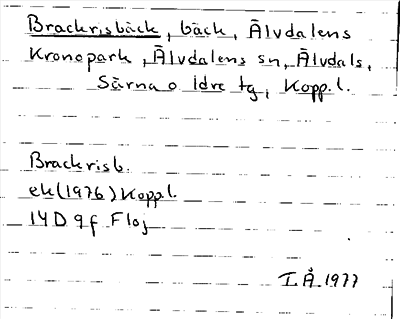 Brackrisbäck, bäck, Älvdalens
Kronopark, Älvdalens sn, Älvdals,
Särna o Idre tg, Kopp. l.
Brackrisb.
ek (1976) Kopp l.
14D 9f Floj
I.Å. 1977